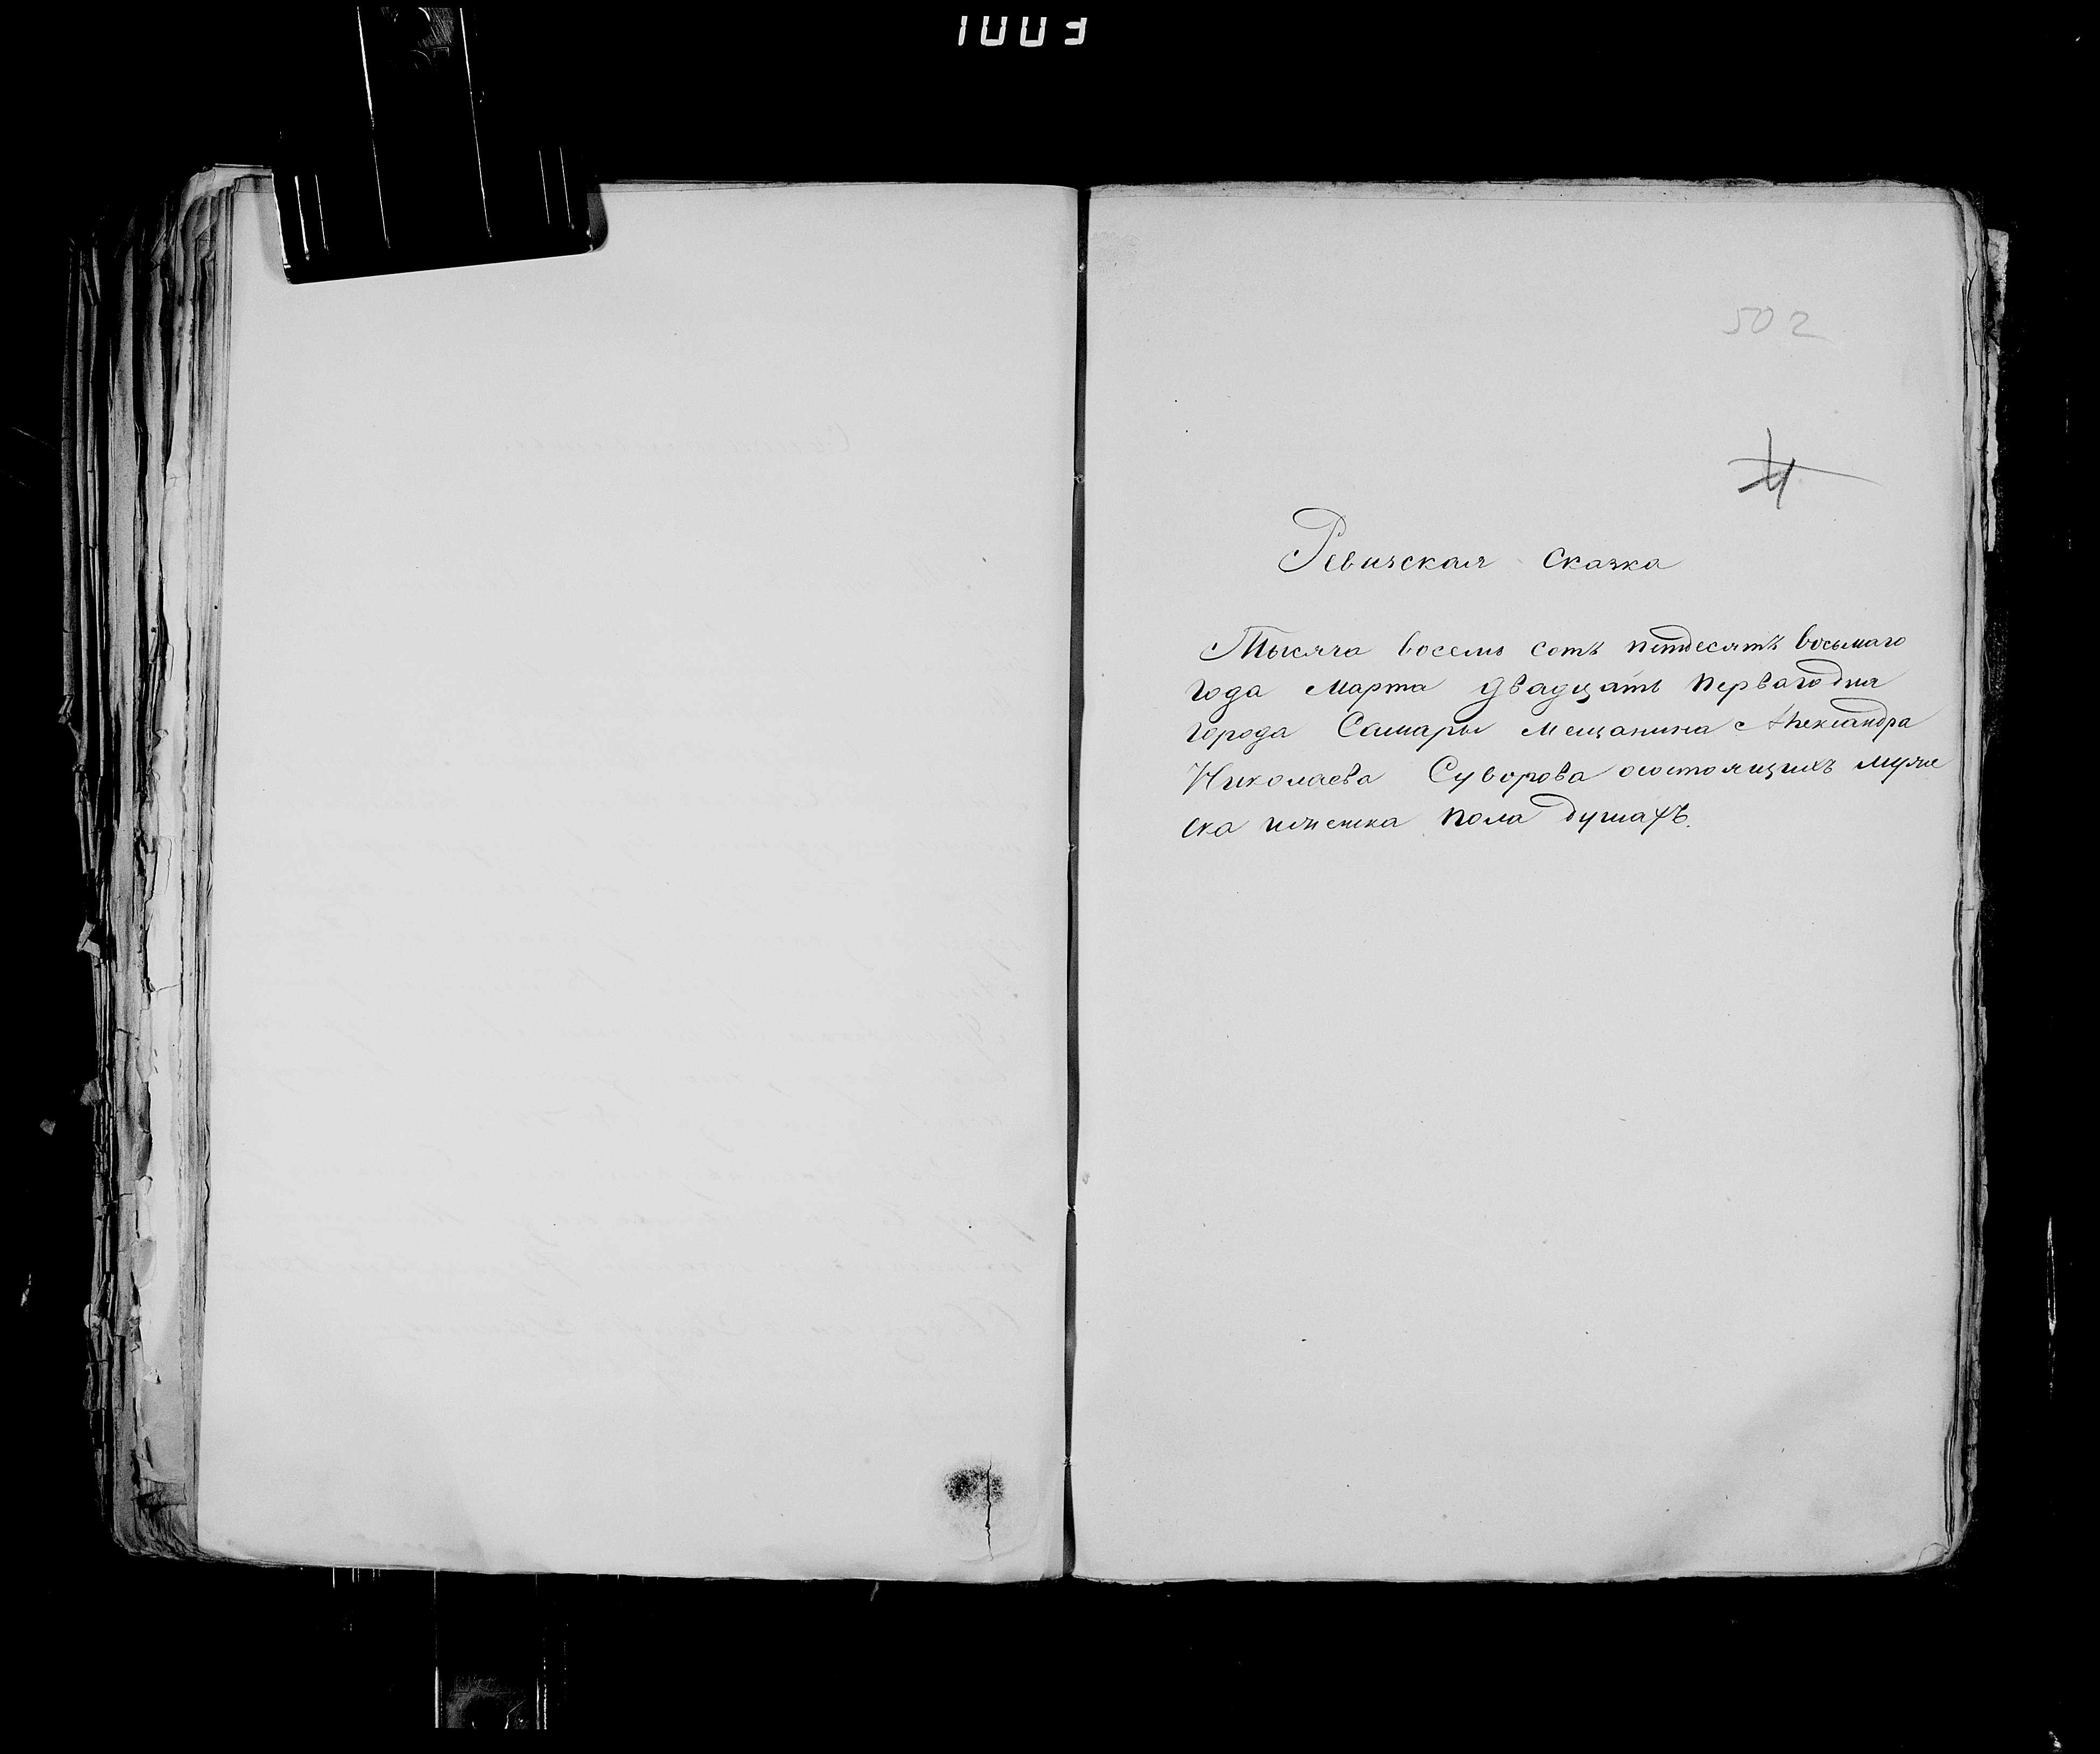 1003
502
Ревизская сказка
Тысяча восемь сотъ пятдесятъ восьмаго
года Марта двадцать перваго дня
города Самары мещанина Александра
Николаева Суворова осостоящихъ муже
ска иженска пола душахъ.